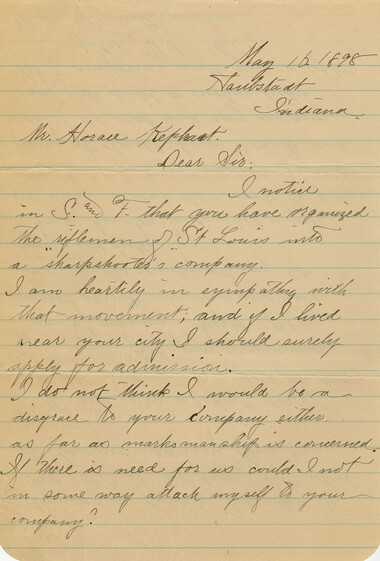 May 16 1898
Haubstadt
Indiana.
Mr. Horace Kephart.
Dear Sir.
I notice
in S. and F. that you have organized
the riflemen of St Louis into
a "sharpshooter's" company.
I am heartily in sympathy with
that movement; and if I lived
near your city I should surely
apply for admission.
I do not think I would be a
disgrace to your company either
as far as marksmanship is concerned.
If there is need for us could I not
in some way attach myself to your
company?